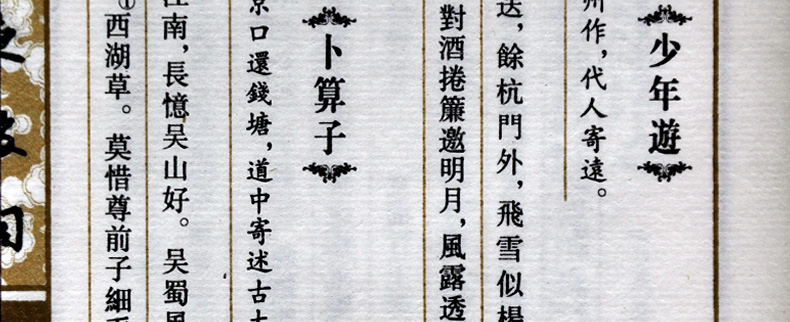 少年遊
州作，代人寄遠。
送，餘杭門外，飛雪似楊
對酒捲簾邀明月，風露透
卜算子
京口還錢塘，道中寄述古太
江南，長憶吴山好。吴蜀風
①西湖草。莫惜尊前子細